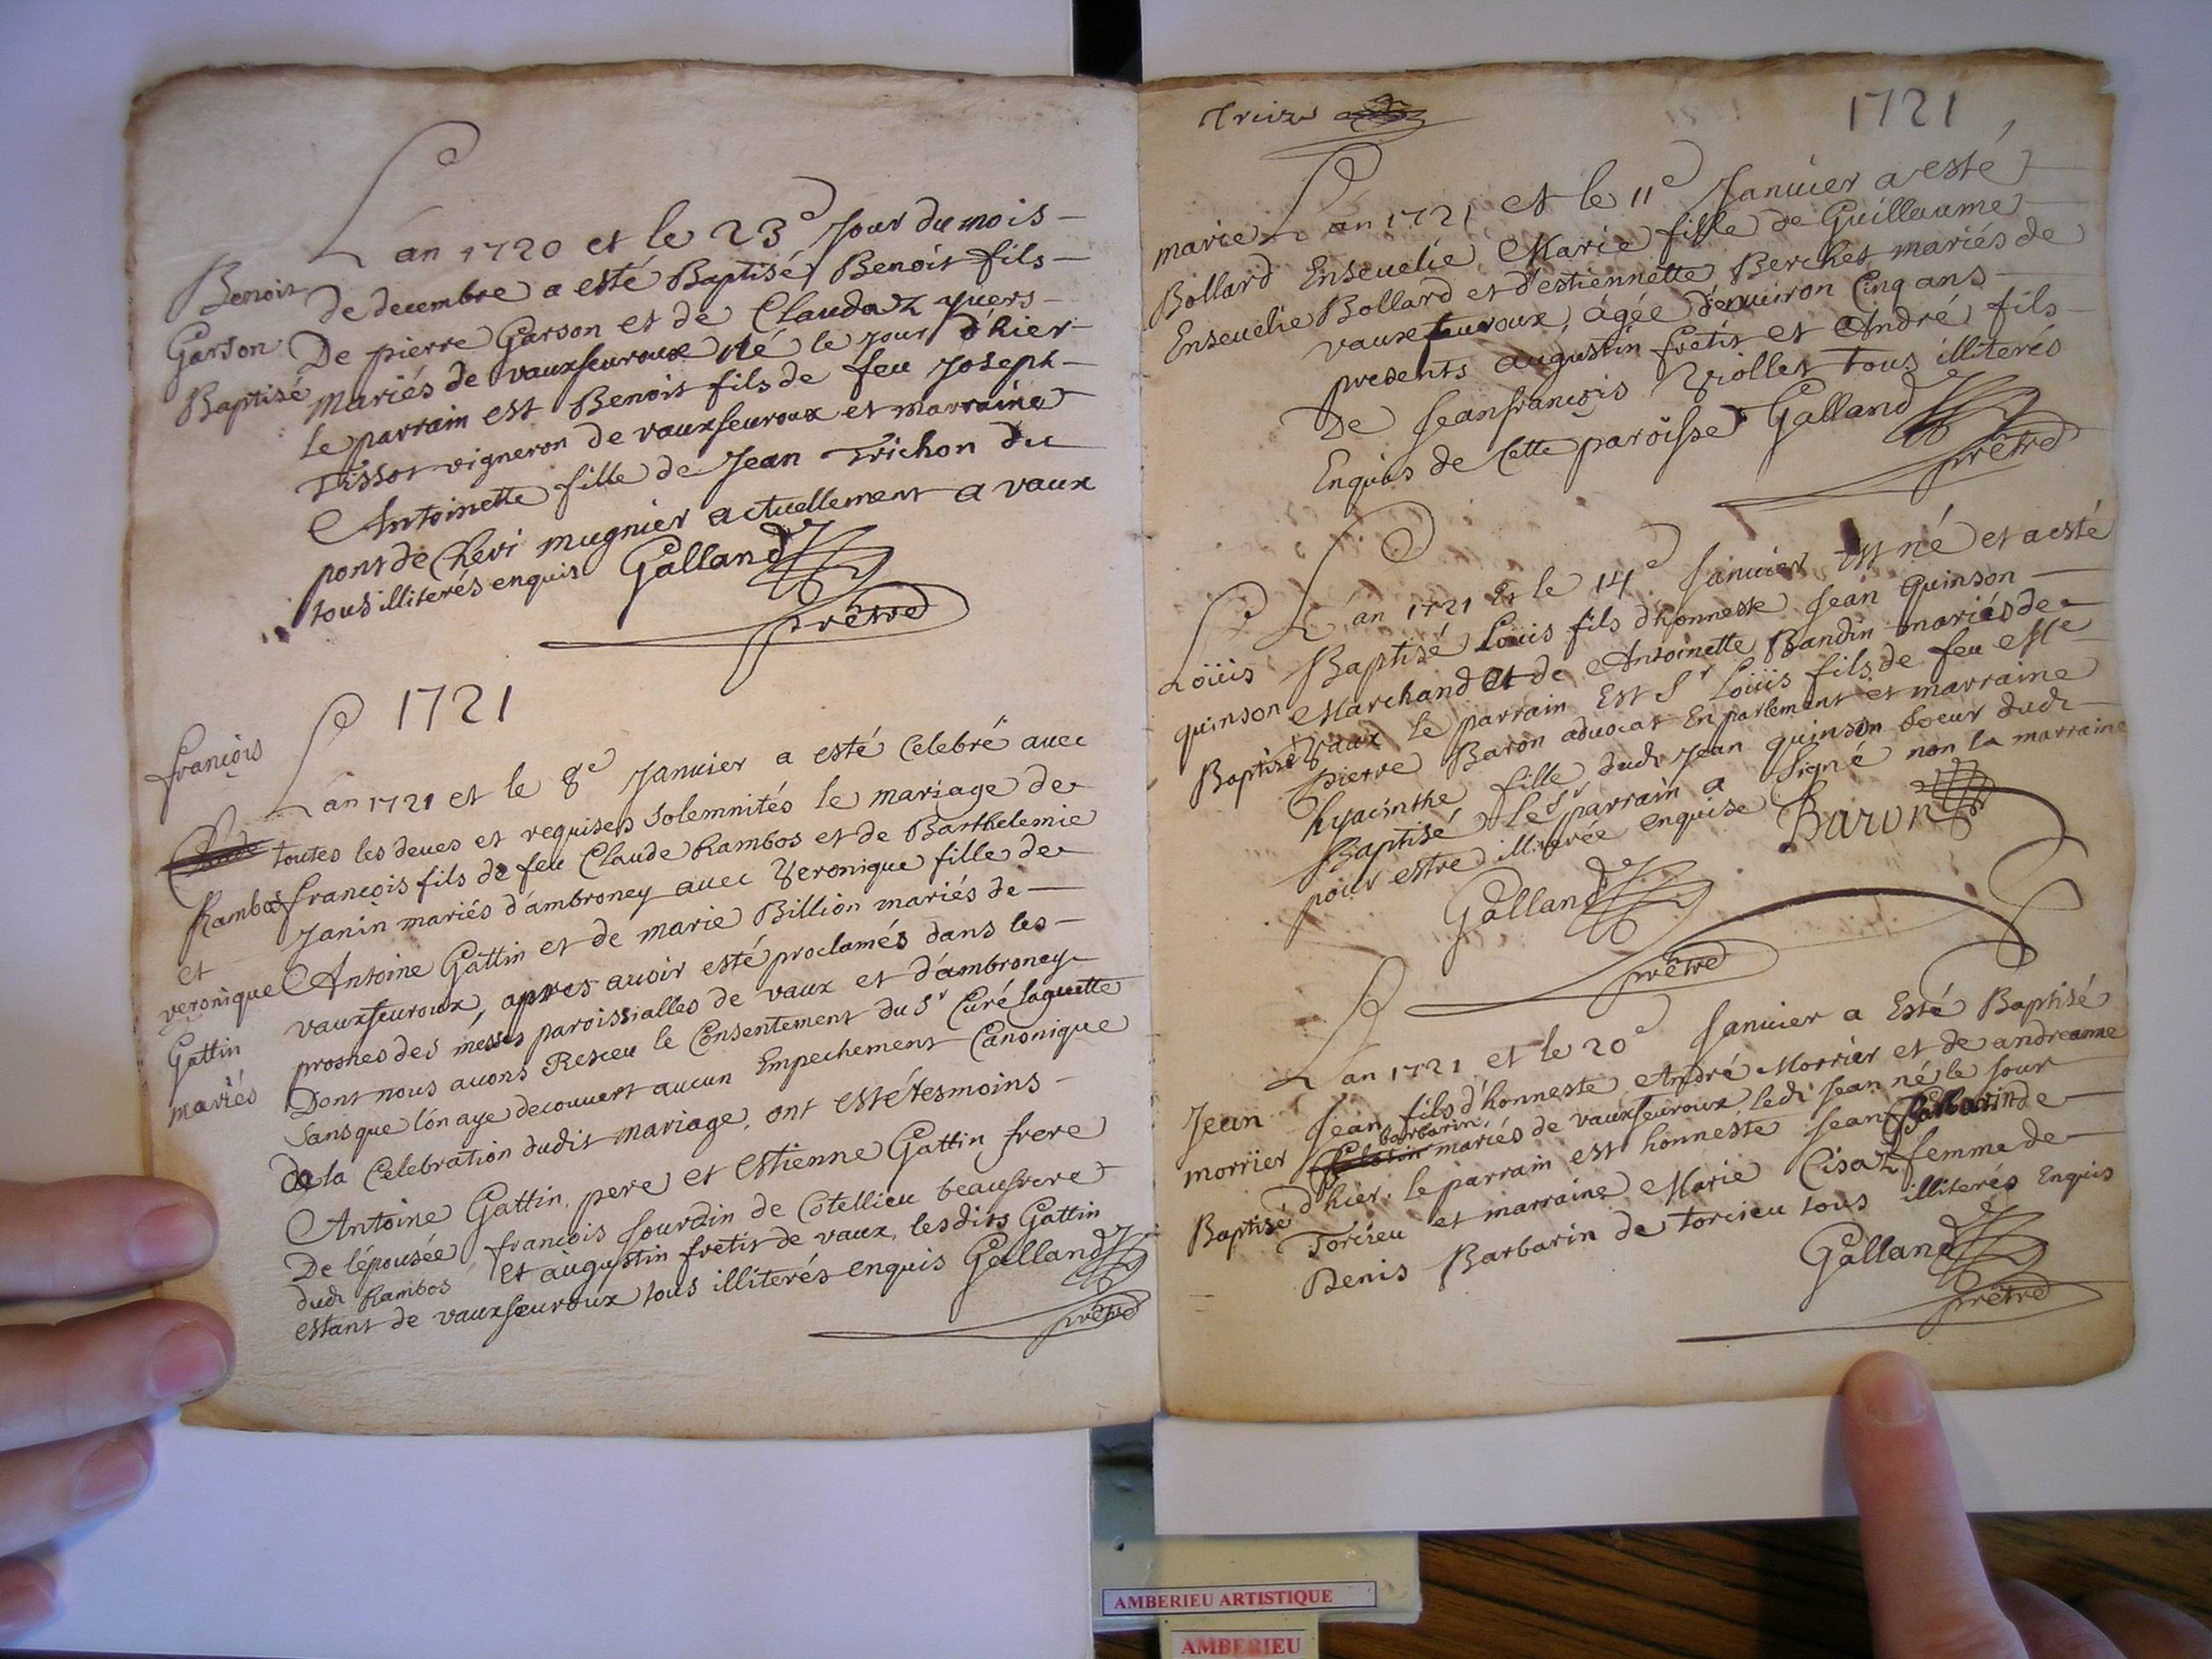 Benoist
Garson
Baptisé
L'an 1720 et le 23e Jour du mois
de decembre a esté Baptisé Benoist fils
De pierre Garson et de Claudaz
Mariés de vauxfeuroux Né le jour d'hier
le parrain est Benoist fils de feu Joseph
Tissot vigneron de vauxfeuroux et marraine
Antoinette fille de Jean Trichon du
pont de Chevi mugnier actuellement a vaux
tous illiterés enquis Galland
prêtre
1721
françois
Rambos
et
veronique
Gattin
mariés
L'an 1721 et le 8e Janvier a esté Celebré avec
toutes les deues et requises Solemnités le mariage de
françois fils de feu Claude Rambos et de Barthelemie
Janin mariés d'ambroney avec Veronique fille de
Antoine Gattin et de marie Billion mariés de
vauxfeuroux, apres avoir esté proclamés dans les
prosnes des messes paroissialles de vaux et d'ambroney
Dont nous avons Resceu le Consentement du Sr Curé
Sans que l'on aye decouvert aucun Empechement Canonique
a la Celebration dudit mariage, ont esté tesmoins
Antoine Gattin, pere et Estienne Gattin frere
De l'épousée, françois Jourdin de Cotellieu beaufrere
dudt Rambos et augustin fretit de vaux, lesdits Gattin
estant de vauxfeuroux tous illiterés enquis Galland
prêtre
Treize
1721
marie
Bollard
Ensevelie
L'an 1721 et le 11e Janvier a esté
Ensevelie Marie fille de Guillaume
Bollard et d'estiennette Berchet mariés de
vauxfeuroux, agée d'environ Cinq ans
presents augustin fretit et André fils
De Jeanfrançois Viollet tous illiterés
Enquis de Cette paroisse Galland
prêtre
Loüis
quinson
Baptisé
L'an 1721 Et le 14e Janvier Est né et a esté
Baptisé Loüis fils d'honneste Jean Quinson
Marchand et de Antoinette Bandin mariés de
Vaux le parrain Est Sr Loüis fils de feu Me
pierre Baron advocat En parlement et marraine
hyacinthe fille dudt Jean quinson soeur dudt
Baptisé le Sr parrain a Signé non la marraine
pour estre illiterée enquise Baron
Galland
prêtre
Jean
morrier
Baptisé
L'an 1721 et le 20e Janvier a Esté Baptisé
Jean fils d'honneste André Morrier et de andreanne
barbarin mariés de vauxfeuroux, ledt Jean né le Jour
d'hier, le parrain est honneste Jean Barbarin de
Torcieu et marraine Marie Cisaz femme de
Denis Barbarin de torcieu tous illiterés Enquis
Galland
prêtre
AMBERIEU ARTISTIQUE
AMBERIEU